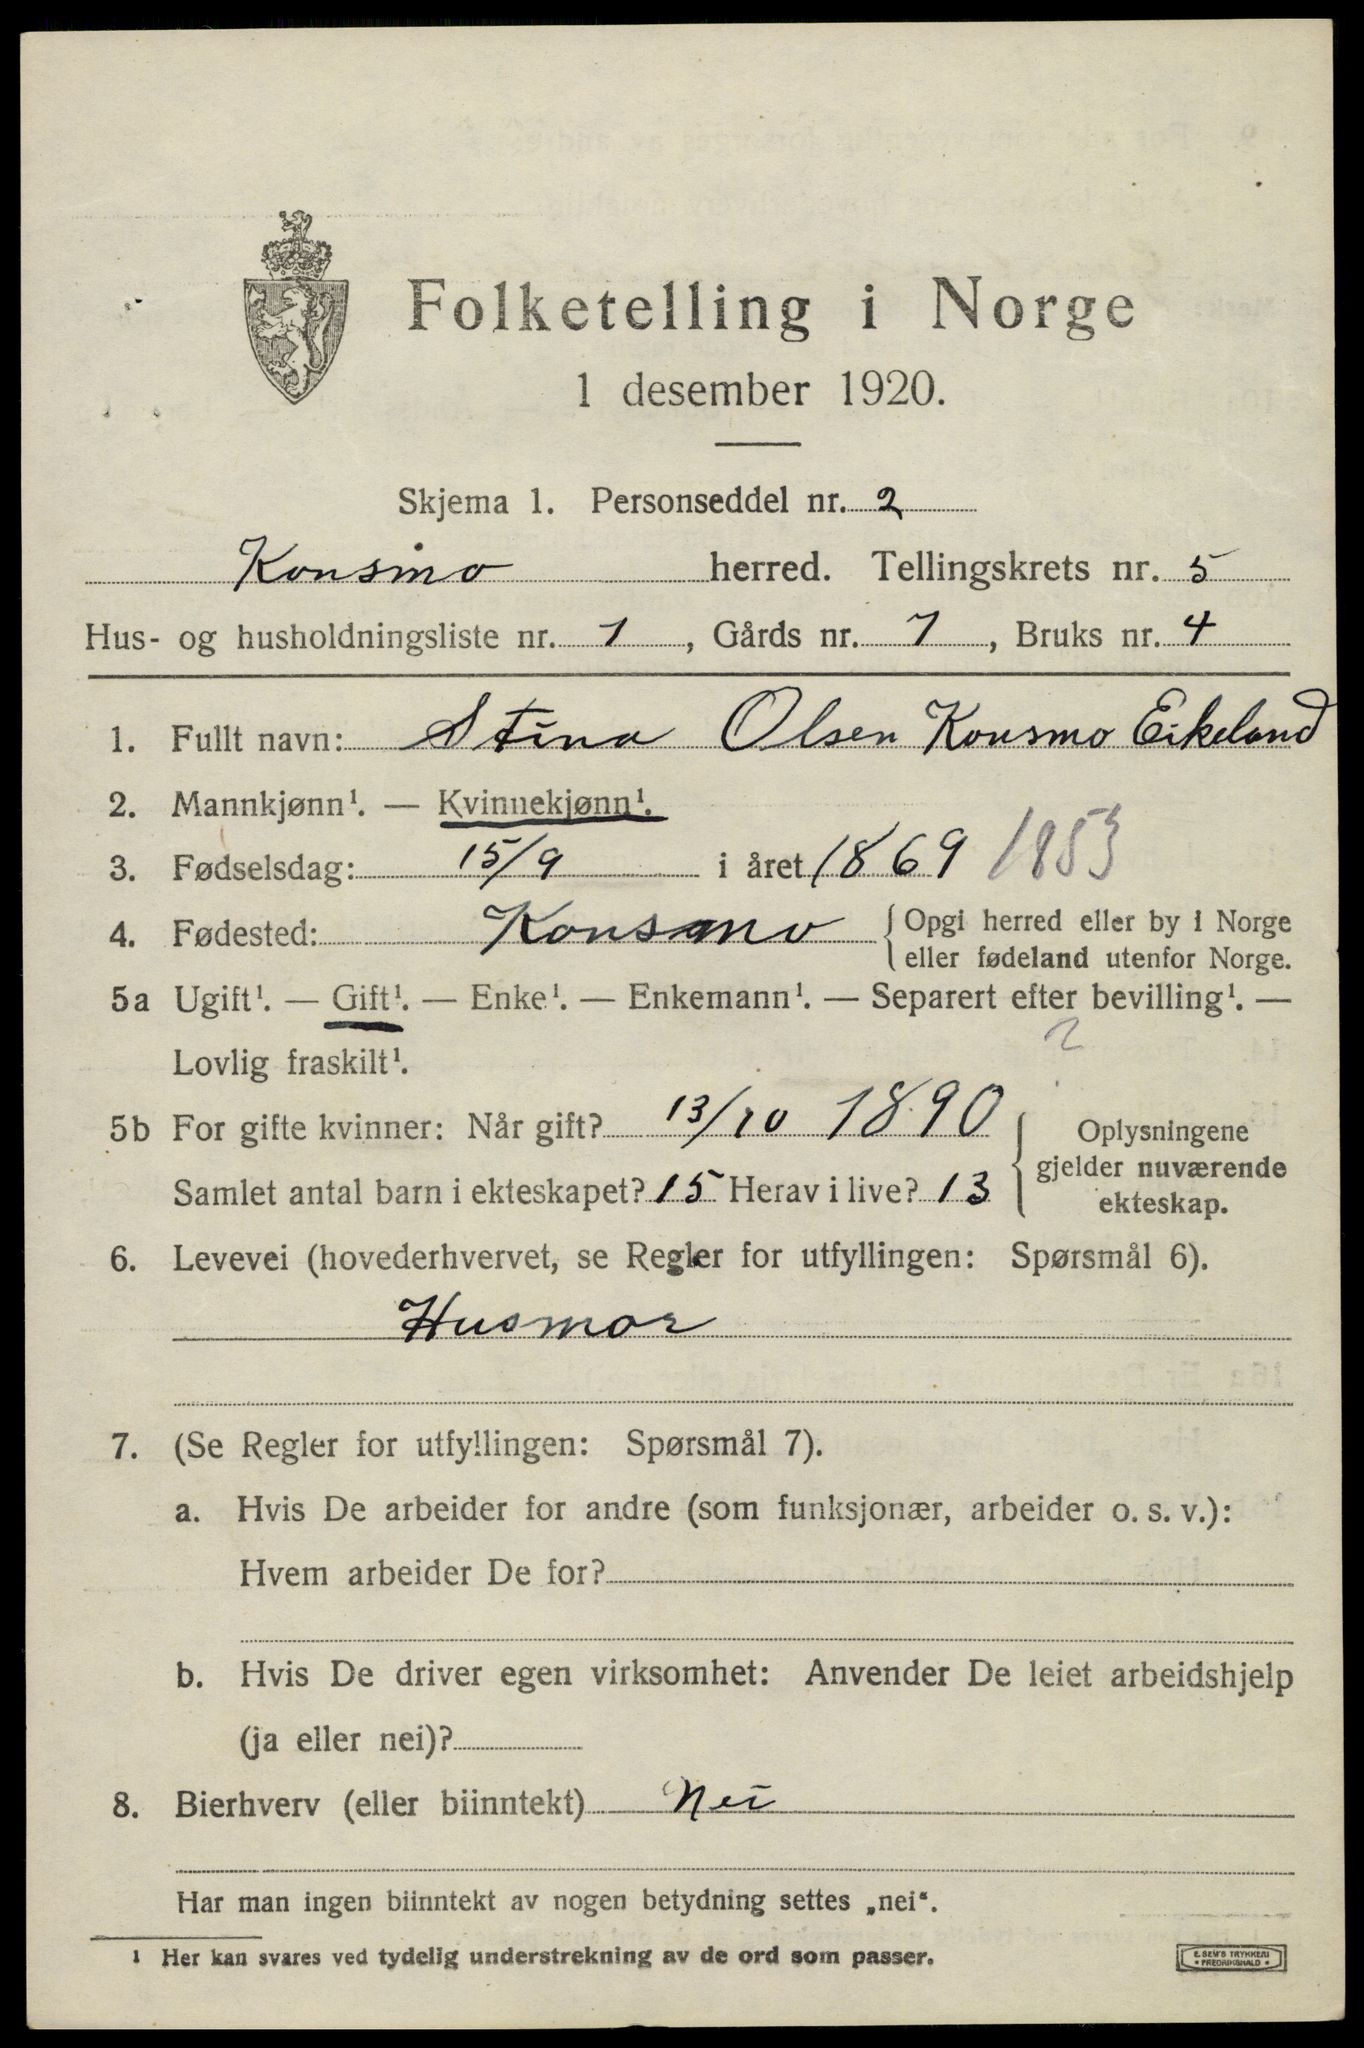 Folketelling i Norge
1 desember 1920.
Skjema 1. Personseddel nr. 2
Konsmo herred. Tellingskrets nr. 5
Hus- og husholdningsliste nr. 1, Gårds nr. 7, Bruks nr. 4
1. Fullt navn: Stina Olsen Konsmo Eikeland
2. Mannkjønn¹. — Kvinnekjønn¹.
3. Fødselsdag: 15/9 i året 1869 1853
4. Fødested: Konsmo { Opgi herred eller by i Norge
eller fødeland utenfor Norge.
5a Ugift¹. — Gift¹. — Enke¹. — Enkemann¹. — Separert efter bevilling¹. —
2
Lovlig fraskilt¹.
5b For gifte kvinner: Når gift? 13/10 1890
Samlet antal barn i ekteskapet? 15 Herav i live? 13
{ Oplysningene
gjelder nuværende
ekteskap.
6. Levevei (hovederhvervet, se Regler for utfyllingen: Spørsmål 6).
Husmor
7. (Se Regler for utfyllingen: Spørsmål 7).
a. Hvis De arbeider for andre (som funksjonær, arbeider o. s. v.):
Hvem arbeider De for?
b. Hvis De driver egen virksomhet: Anvender De leiet arbeidshjelp
(ja eller nei)?
8. Bierhverv (eller biinntekt) Nei
Har man ingen biinntekt av nogen betydning settes „nei“.
¹ Her kan svares ved tydelig understrekning av de ord som passer.
E. SEM'S TRYKKERI
* FREDRIKSHALD *